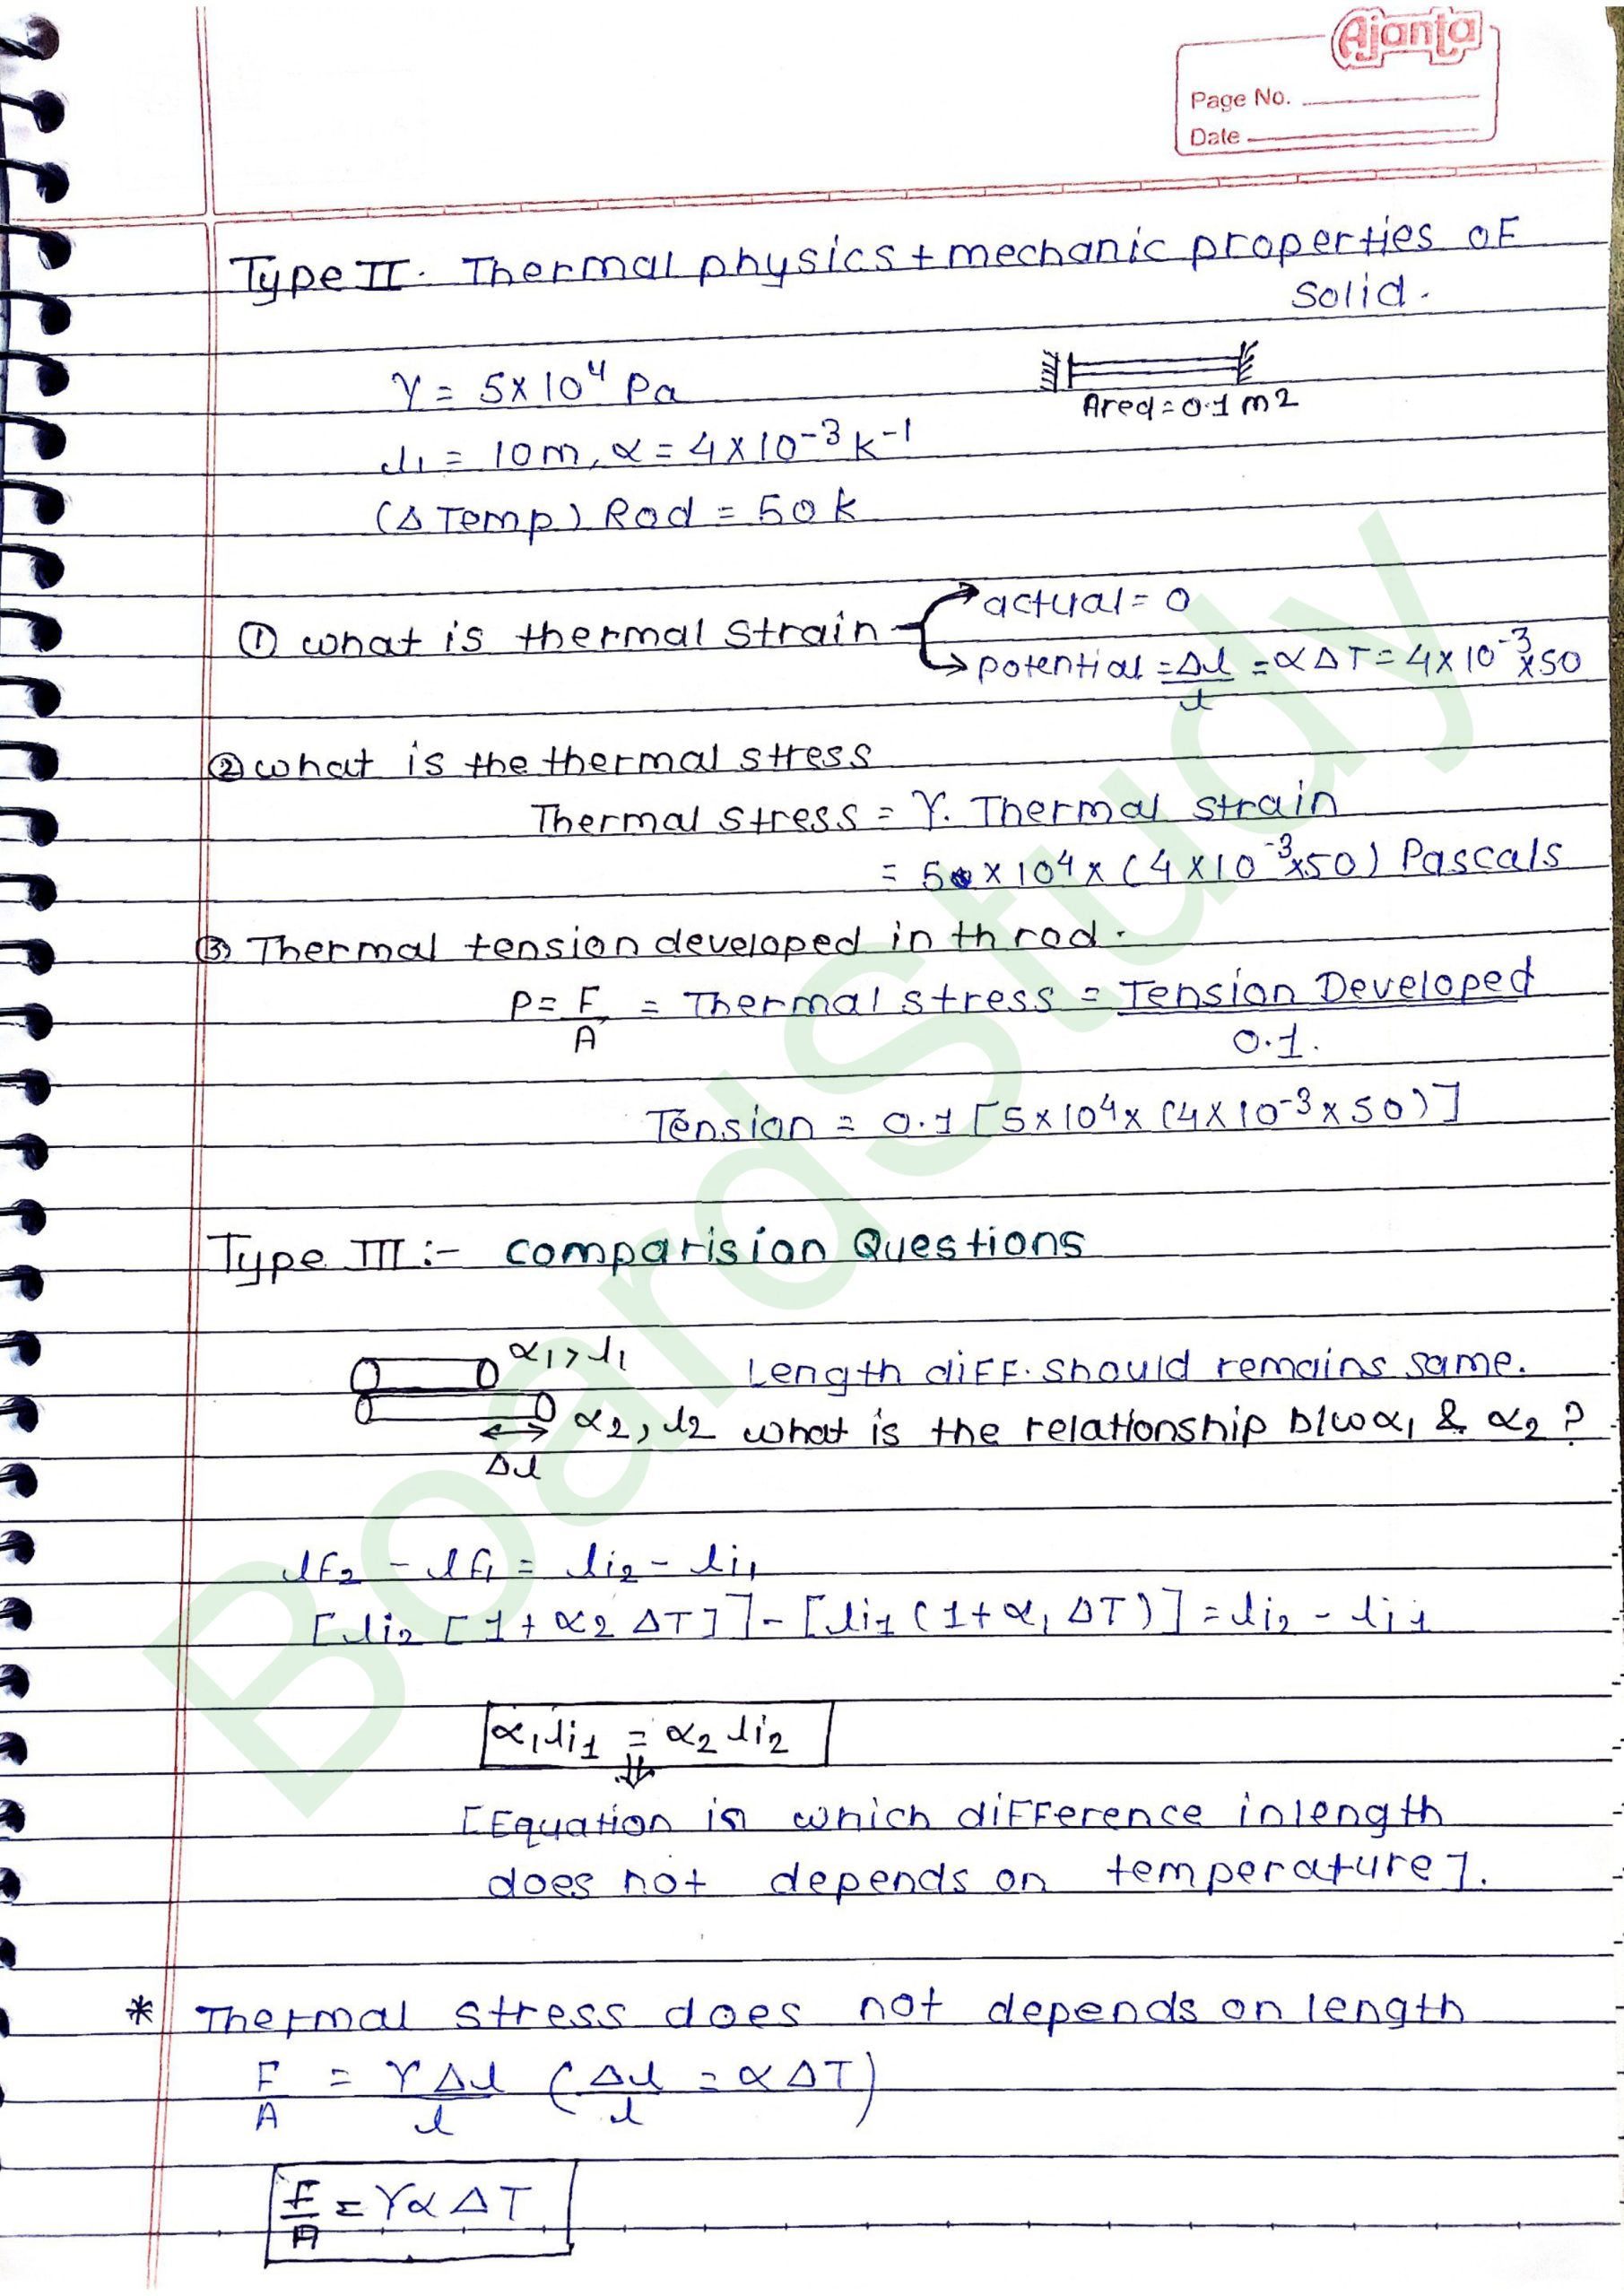 Ajanta
Page No.
Date
Type II. Thermal physics + mechanic properties of
solid.
Y = 5×10⁴ Pa
Area = 0.1 m2
l₁ = 10m, α = 4×10⁻³ k⁻¹
(Δ Temp) Rod = 50k
① what is thermal strain → actual = 0
→ potential = Δl/l = αΔT = 4×10⁻³×50
② what is the thermal stress
Thermal stress = Y. Thermal strain
= 5 × 10⁴ × (4×10⁻³×50) Pascals
③ Thermal tension developed in th rod.
P = F/A = Thermal stress = Tension Developed/0.1.
Tension = 0.1 [5×10⁴× (4×10⁻³×50)]
Type III :- comparision Questions
α₁, l₁ Length diff. should remains same.
α₂, l₂ what is the relationship b/w α₁ & α₂ ?
Δl
lF₂ - lF₁ = li₂ - li₁
[li₂ [1 + α₂ ΔT]] - [li₁ (1 + α₁ ΔT)] = li₂ - li₁
α₁li₁ = α₂ li₂
⇓
[Equation in which difference in length
does not depends on temperature].
* Thermal stress does not depends on length
F/A = YΔl/l (Δl/l = αΔT)
F/A = YαΔT
BoardStudy